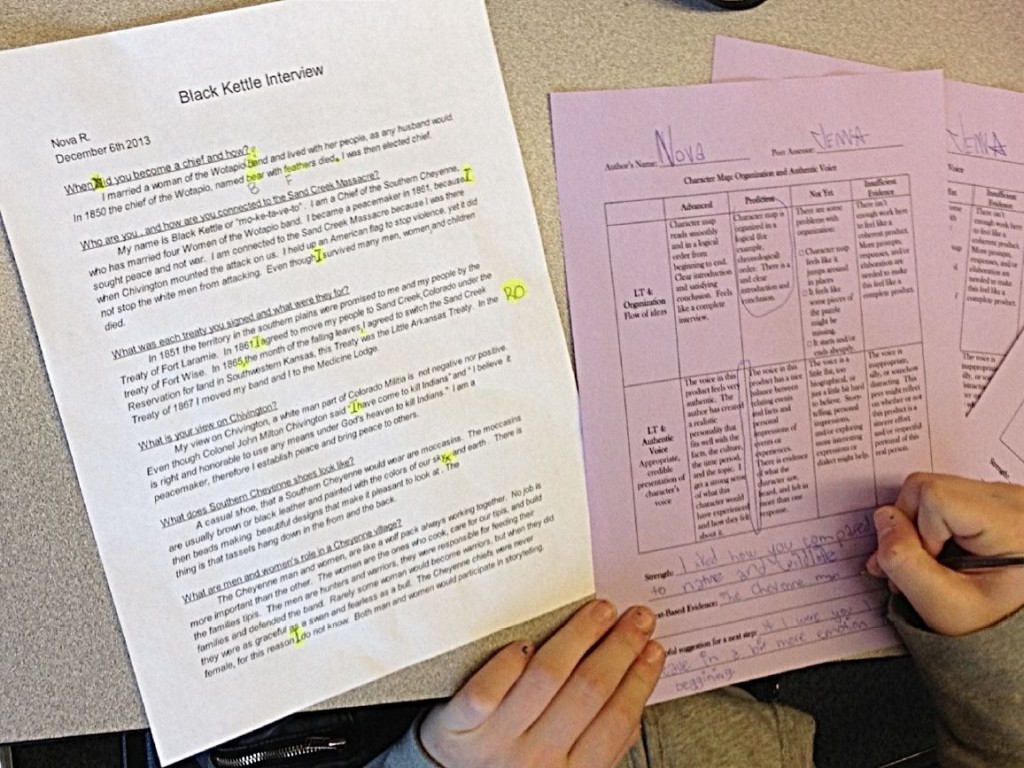 Black Kettle Interview
Nova R.
December 6th 2013
When did you become a chief and how?
I married a woman of the Wotapio band and lived with her people, as any husband would.
In 1850 the chief of the Wotapio, named bear with feathers died. I was then elected chief.
B F
Who are you, and how are you connected to the Sand Creek Massacre?
My name is Black Kettle or "mo-ke-ta-ve-to". I am a Chief of the Southern Cheyenne,
who has married four Women of the Wotapio band. I became a peacemaker in 1861, because I
sought peace and not war. I am connected to the Sand Creek Massacre because I was there
when Chivington mounted the attack on us. I held up an American flag to stop violence, yet it did
not stop the white men from attacking. Even though I survived many men, women and children
died.
What was each treaty you signed and what were they for?
In 1851 the territory in the southern plains were promised to me and my people by the
Treaty of Fort Laramie. In 1861 I agreed to move my people to Sand Creek, Colorado under the
treaty of Fort Wise. In 1865, the month of the falling leaves, I agreed to switch the Sand Creek
Reservation for land in Southwestern Kansas, this Treaty was the Little Arkansas Treaty. In the
Treaty of 1867 I moved my band and I to the Medicine Lodge.
RO
What is your view on Chivington?
My view on Chivington, a white man part of Colorado Militia is not negative nor positive.
Even though Colonel John Milton Chivington said "I have come to kill Indians" and " I believe it
is right and honorable to use any means under God's heaven to kill Indians" " I am a
peacemaker, therefore I establish peace and bring peace to others.
What does Southern Cheyenne shoes look like?
A casual shoe, that a Southern Cheyenne would wear are moccasins. The moccasins
are usually brown or black leather and painted with the colors of our sky and earth. There is
then beads making beautiful designs that make it pleasant to look at. The
thing is that tassels hang down in the front and the back.
What are men and women's role in a Cheyenne village?
The Cheyenne man and women, are like a wolf pack always working together. No job is
more important than the other. The women are the ones who cook, care for our tipis, and build
the families tipis. The men are hunters and warriors, they were responsible for feeding their
families and defended the band. Rarely some woman would become warriors, but when they did
they were as graceful as a swan and fearless as a bull. The Cheyenne chiefs were never
female, for this reason I do not know. Both man and women would participate in storytelling.
Author's Name: Nova Peer Assessor: JENNA
Character Map: Organization and Authentic Voice
Advanced
Proficient
Not Yet
Insufficient
Evidence
LT 4:
Organization
Flow of ideas
Character map
reads smoothly
and in a logical
order from
beginning to end.
Clear introduction
and satisfying
conclusion. Feels
like a complete
interview.
Character map is
organized in a
logical (for
example,
chronological)
order. There is a
and clear
introduction and
conclusion.
There are some
problems with
organization.
Character map
feels like it
jumps around
in places
It feels like
some pieces of
the puzzle
might be
missing.
It starts and/or
ends abruptly
There isn't
enough work here
to feel like a
coherent product.
More prompts,
responses, and/or
elaboration are
needed to make
this feel like a
complete product.
LT 4:
Authentic
Voice
Appropriate,
credible
presentation of
character's
voice
The voice in this
product feels very
authentic. The
author has created
a realistic
personality that
fits well with the
facts, the culture,
the time period,
and the topic. I
get a strong sense
of what this
character would
have experienced
and how they felt
about it.
The voice in this
product has a nice
balance between
telling events
and facts and
personal
impressions of
events or
experiences.
There is evidence
of what the
character saw,
heard, and felt in
more than one
response.
The voice is a
little flat, too
biographical, or
just hard
to believe. Story-
telling, personal
impressions,
and/or exploring
some interesting
expressions or
dialect might help.
The voice is
inappropriate,
silly, or somehow
distracting. This
piece might reflect
on whether or not
this product is a
sincere effort
and/or respectful
portrayal of this
real person.
Strength: I liked how you compared
to nature and wildlife
Text-Based Evidence: The cheyenne man
suggestion for a next step: if I were you I
in a bit more emotion
beggining
JENNA